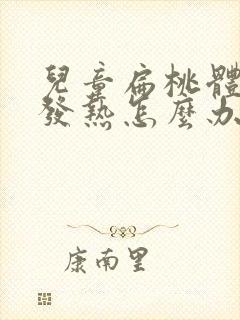 兒童扁桃體
發熱怎麼办
康南里